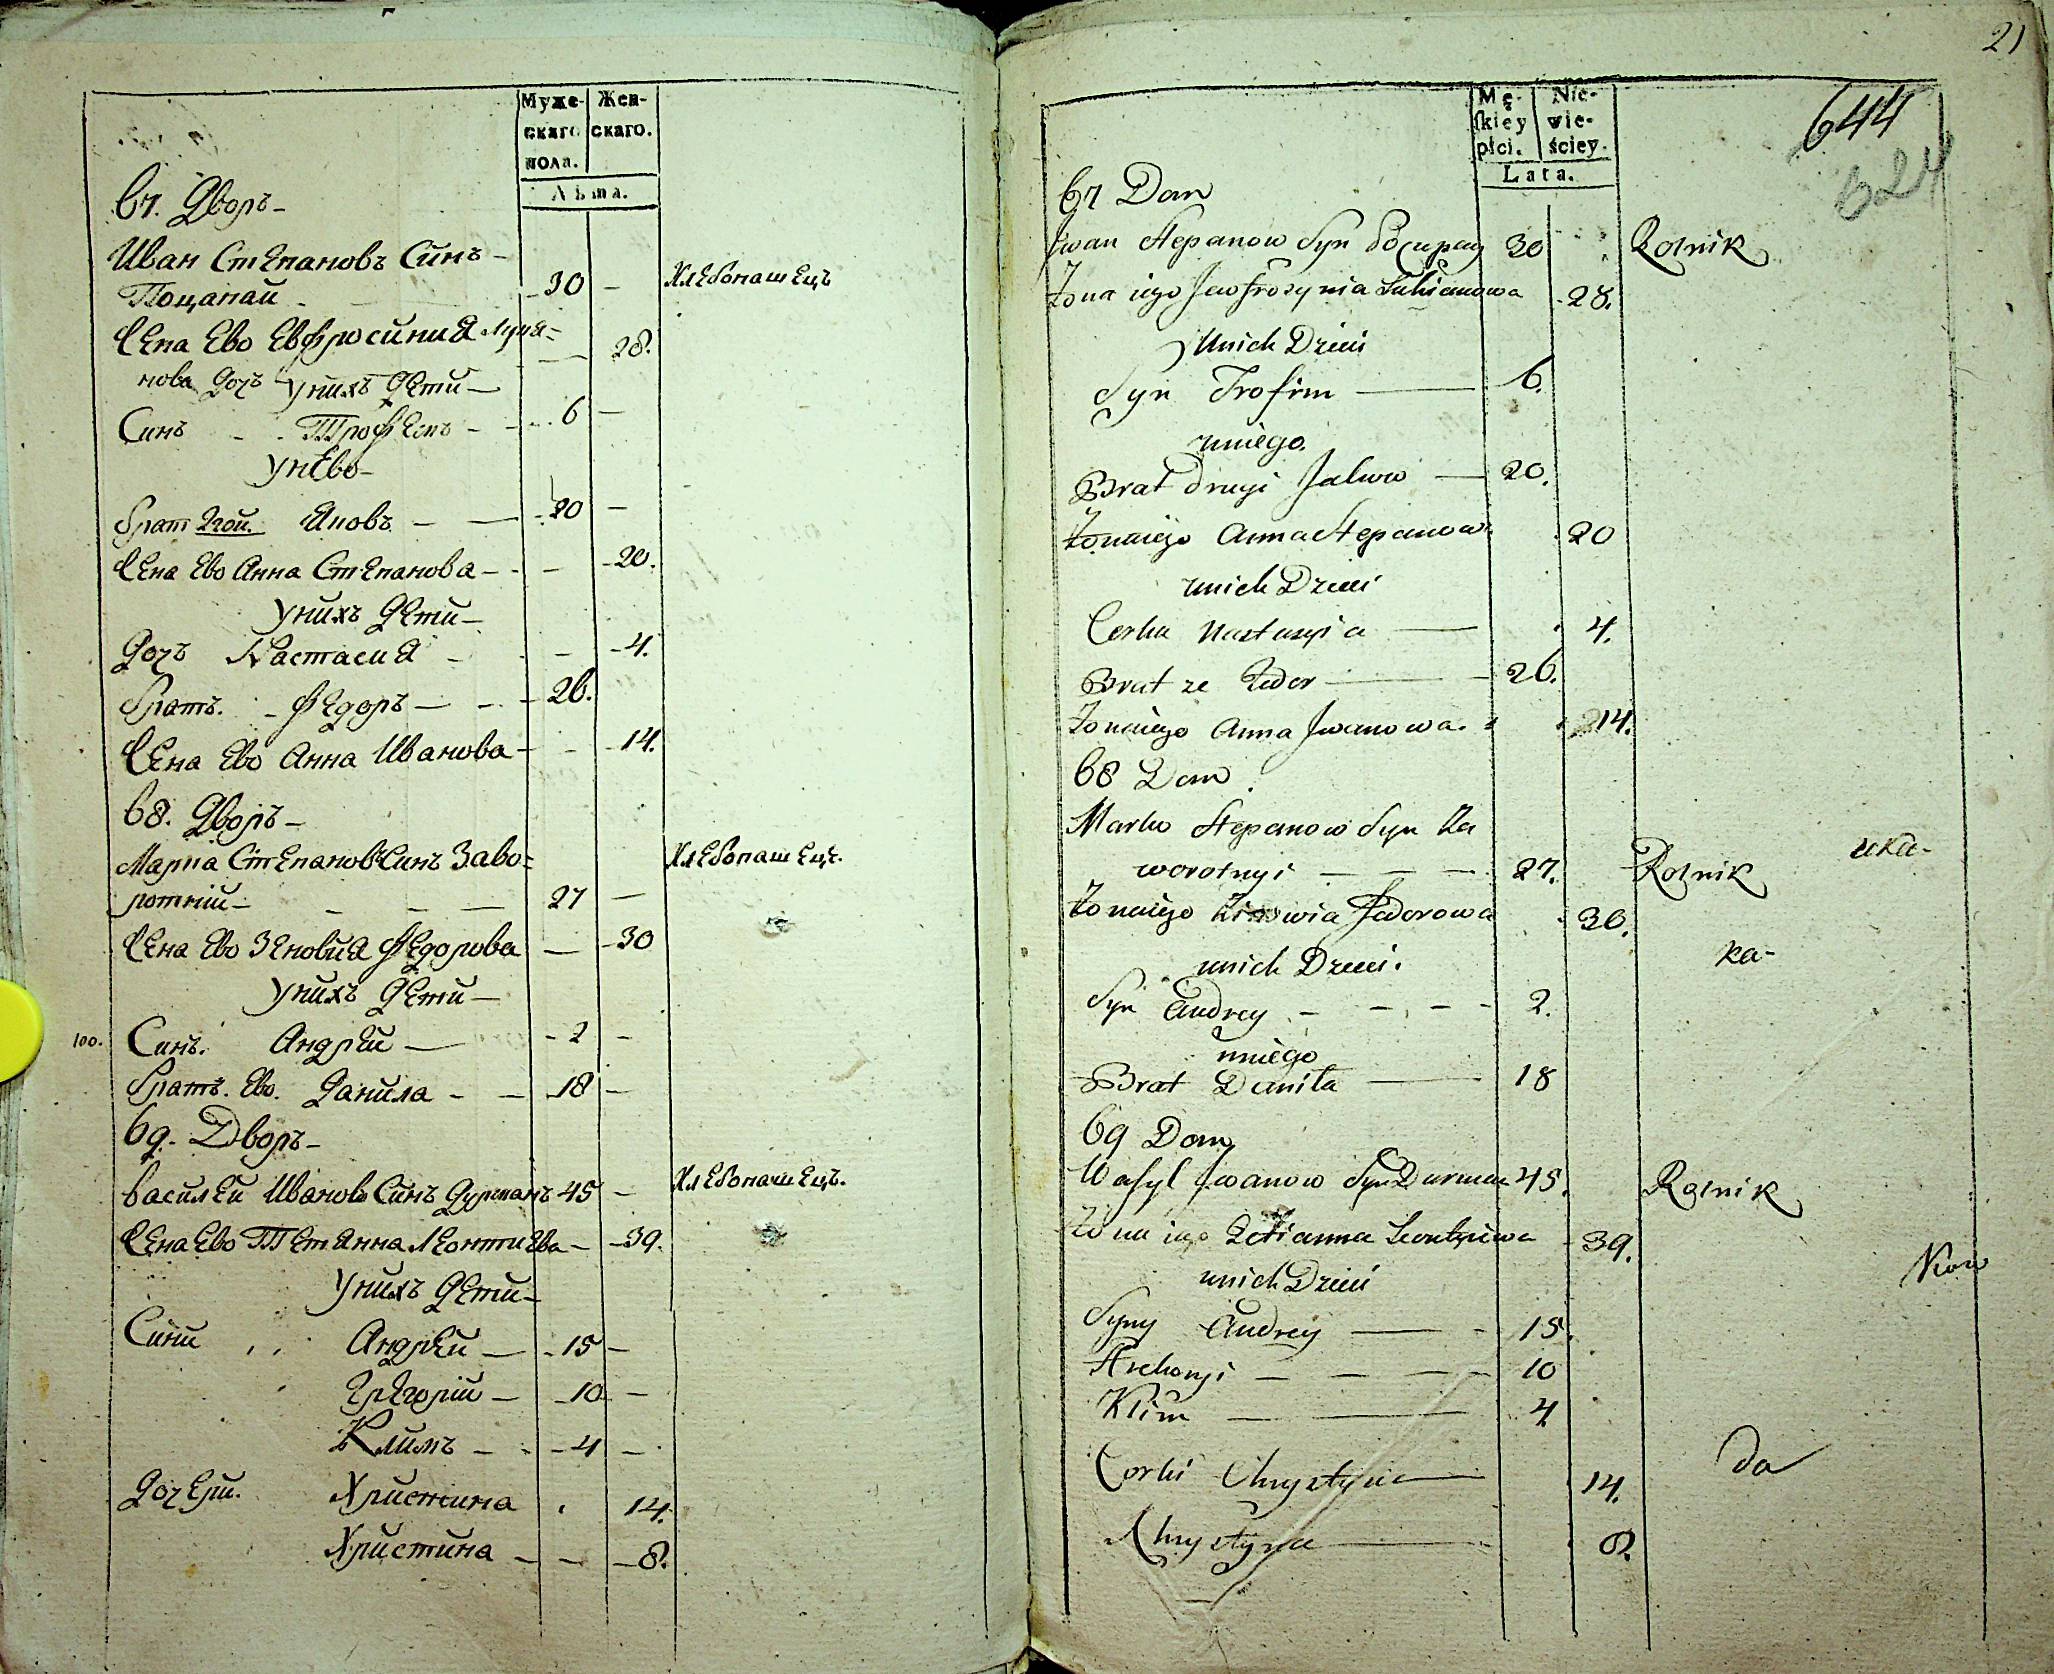 Муже- Жен-
скаго скаго.
пола.
Лѣта.
67. Дворъ
Иван Степановъ Синъ
Поцапай 30 Хлебопашецъ
Жена Ево Евфросиния Лукя-
нова Дочъ 28.
Унихъ Дети
Синъ Трофемъ 6
Унево
Брат 2гой. Яковъ 20
Жена Ево Анна Степанова 20.
Унихъ Дети
Дочъ Настасия 4.
Братъ. Федоръ 26.
Жена Ево Анна Иванова 14.
68. Дворъ
Марка Степановъ Синъ Заво=
ротний 27 Хлебопашецъ.
Жена Ево Зеновия Федорова 30
Унихъ Дети
100. Синъ. Андрей 2
Братъ. Ево. Данила 18
69. Дворъ
Василей Ивановъ Синъ Дурманъ 45 Хлебопашецъ.
Жена Ево Тетянна Леонтиева 39.
Унихъ Дети
Сини Андрей 15
Грегорий 10
Климъ 4
Дочери. Христина 14.
Христина 8.
21
644
624
Mę- Nie-
skiey wie-
płci. ściey.
Lata.
67 Dom
Iwan Stepanow Syn 30 Rolnik
Żona iego Jewfrozynia Lukianowa 28.
Unich Dzieci
Syn Trofim 6.
uniego.
Brat drugi Jakow 20.
Żona iego Anna Stepanowa 20
unich Dzieci
Corka Nastazyia 4.
Brat ze Fedor 26.
Żona iego Anna Iwanowa. 14.
68 Dom
Marko Stepanow Syn Za
worotnyi 27. Rolnik
Żona iego Zinowia Fedorowa 30.
unich Dzieci.
Syn Andrey 2.
uniego
Brat Daniła 18
69 Dom
Wasyl Iwanow Syn Durman 45. Rolnik
Żona iego Tetianna Leontyiewa 39.
unich Dzieci
Syny Andrey 15.
Hrehoryi 10
Klim 4
Corki Chrystyna 14.
Chrystyna 8.
ка-
да